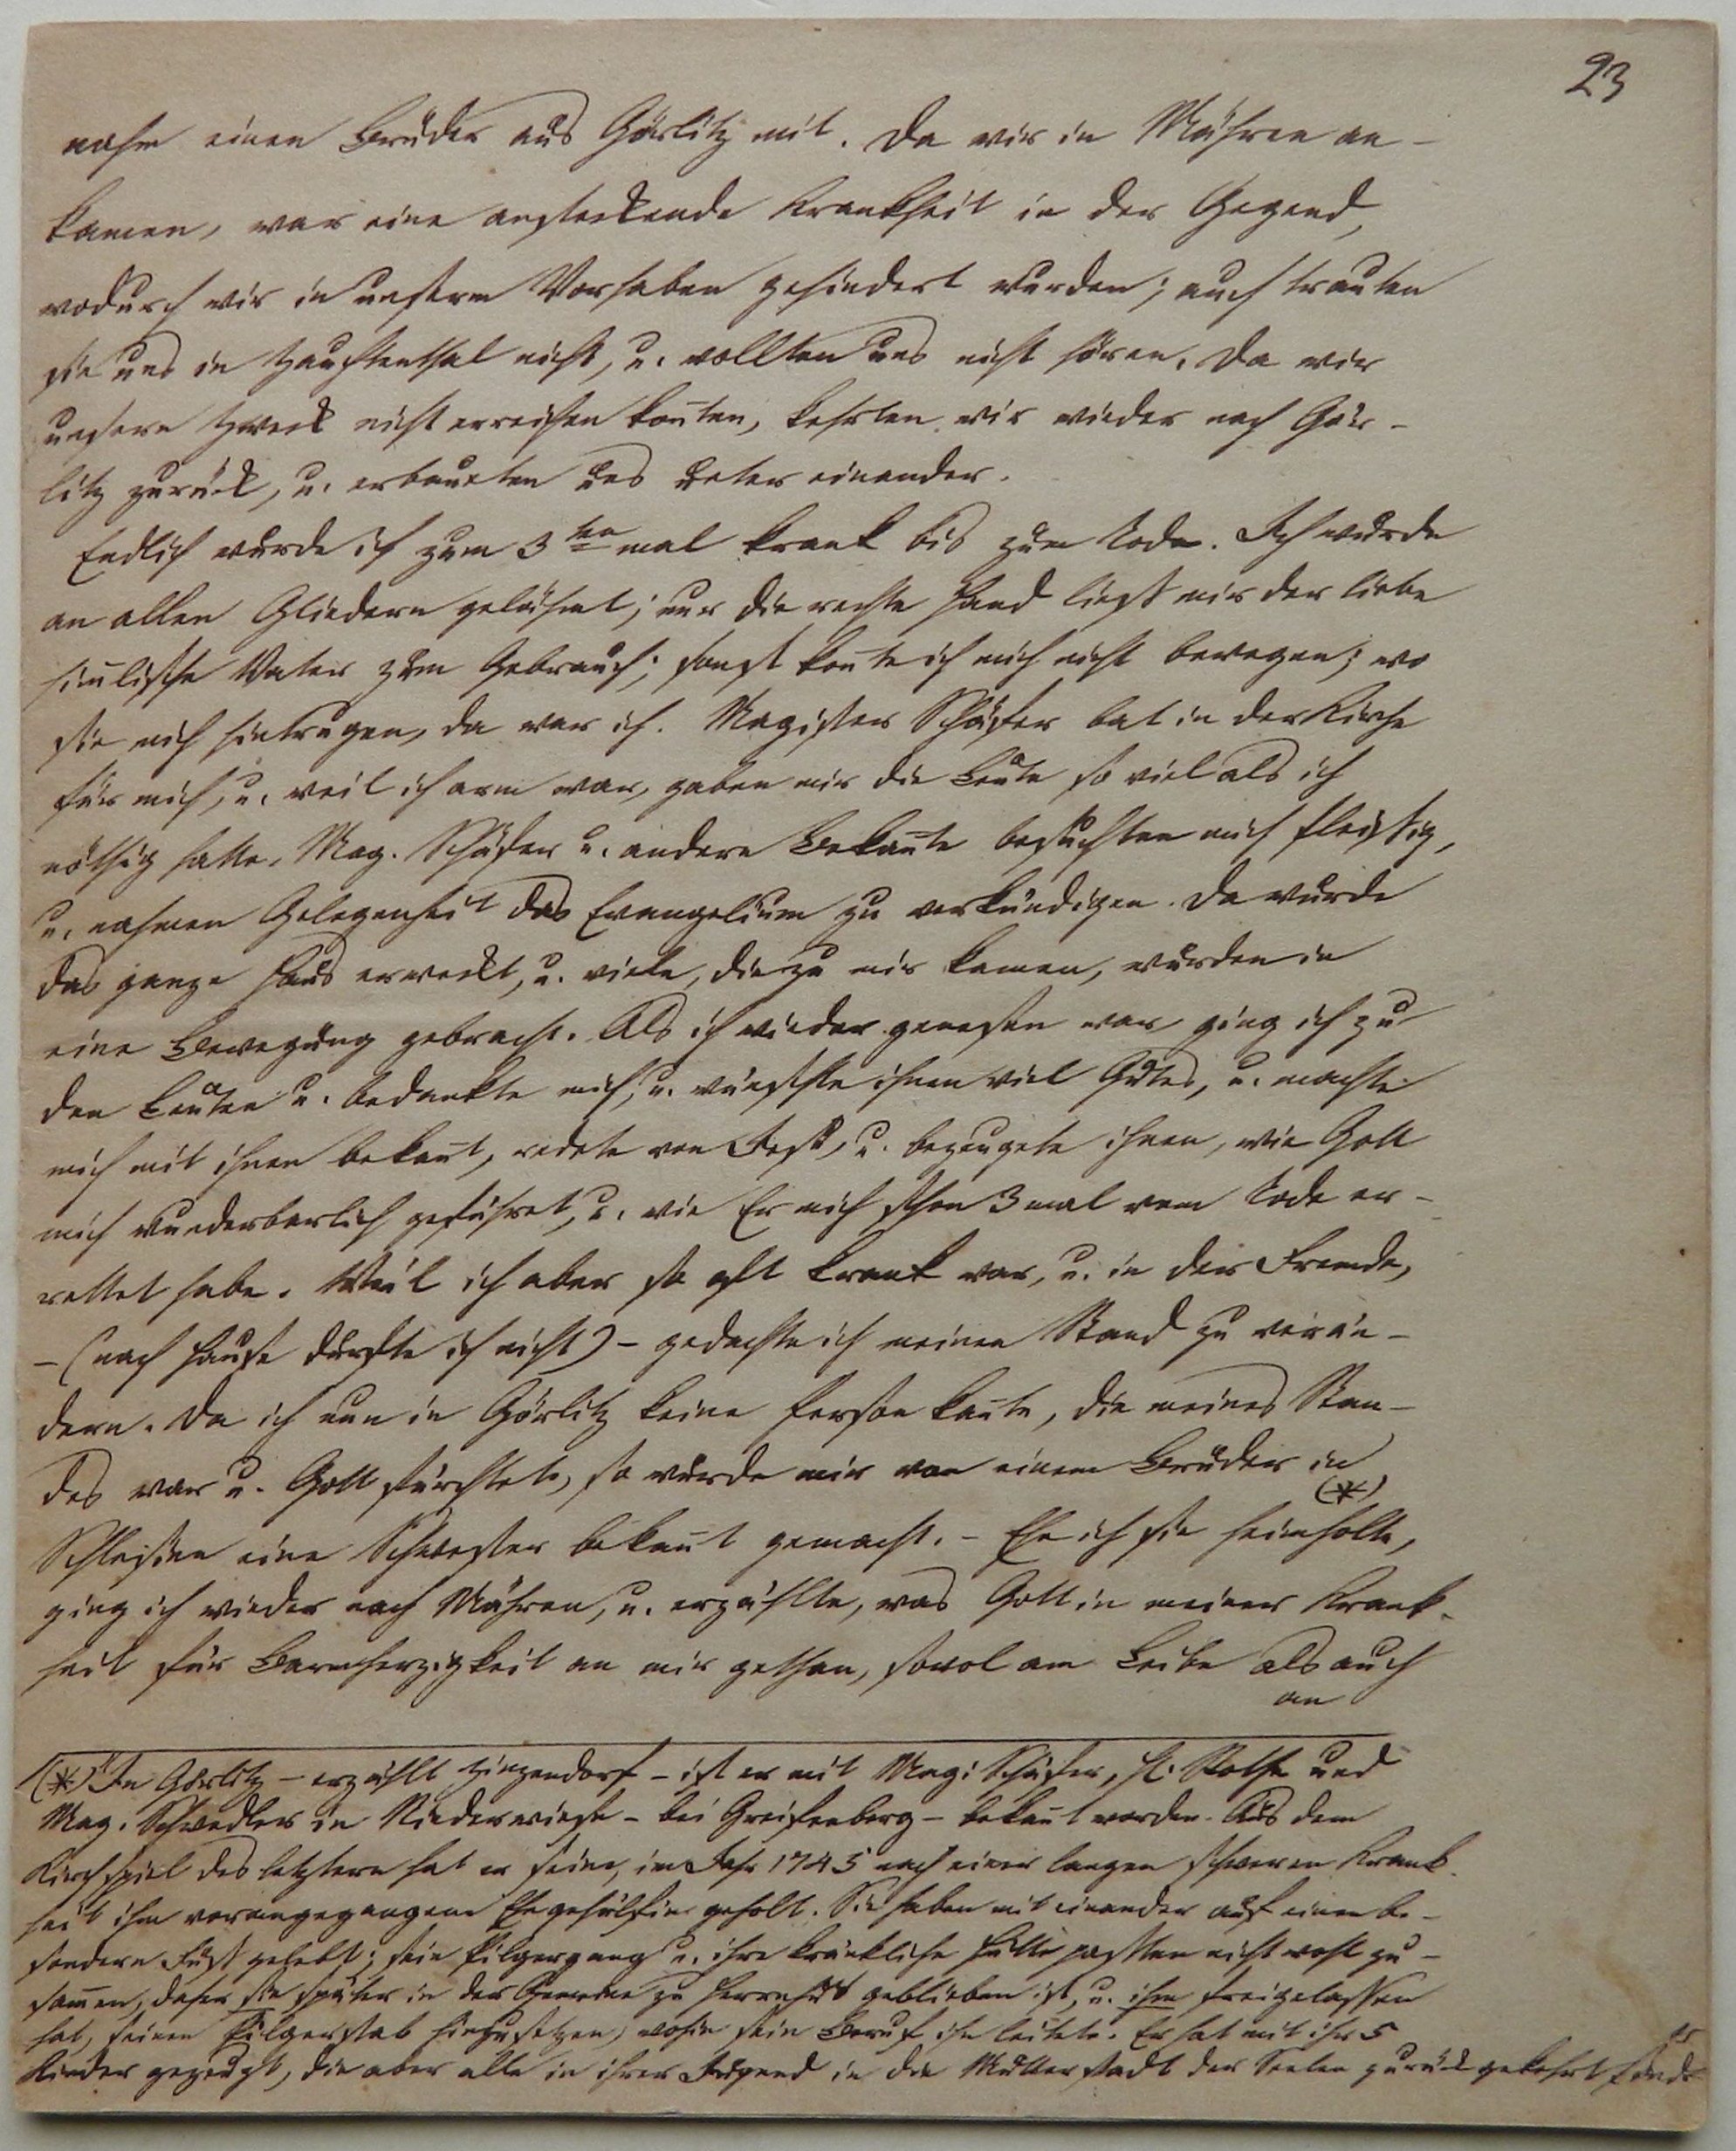 23
nahm einen Bruder aus Görlitz mit. Da wir in Mähren an-
kamen, war eine ansteckende Krankheit in der Gegend,
wodurch wir in unserm Vorhaben gehindert wurden; auch trauten
sie uns in Zauchtenthal nicht, u. wollten uns nicht hören. Da wir
unsern Zweck nicht erreichen kon̄ten, kehrten wir wieder nach Gör-
litz zurück, u. erbaueten uns unter einander.
Endlich wurde ich zum 3ten mal krank bis zum Tode. Ich wurde
an allen Gliedern gelähmt; nur die rechte Hand ließ mir der liebe
him̄lische Vater zum Gebrauch; sonst kon̄te ich mich nicht bewegen; wo
sie mich hintrugen, da war ich. Magister Schäfer bat in der Kirche
für mich, u. weil ich arm war, gaben mir die Leute so viel als ich
nöthig hatte. Mag. Schäfer u. andere Bekan̄te besuchten mich fleißig,
u. nahmen Gelegenheit das Evangelium zu verkündigen. Da wurde
das ganze Haus erweckt, u. viele, die zu mir kamen, wurden in
eine Bewegung gebracht. Als ich wieder genesen war ging ich zu
den Leuten u. bedankte mich, u. wünschte ihnen viel Gutes, u. machte
mich mit ihnen bekan̄t, redete von Jesu, u. bezeugete ihnen, wie Gott
mich wunderbarlich geführet, u. wie Er mich schon 3 mal vom Tode er-
rettet habe. Weil ich aber so oft krank war, u. in der Fremde,
– (nach Hause durfte ich nicht) – gedachte ich meinen Stand zu verän-
dern. Da ich nun in Görlitz keine Person kan̄te, die meines Stan-
des war u. Gott fürchtete, so wurde mir von einem Bruder in
Schlesien eine Schwester bekan̄t gemacht. (*) – Ehe ich sie heimholte,
ging ich wieder nach Mähren, u. erzählte, was Gott in meiner Krank-
heit für Barmherzigkeit an mir gethan, sowol am Leibe als auch
an
(*) "In Görlitz – erzählt Zinzendorf – ist er mit Mag. Schäfer, H. Rothe und
Mag. Schwedler in Niederwiese – bei Greifenberg – bekan̄t worden. Aus dem
Kirchspiel des letztern hat er seine, im Jahr 1745 nach einer langen schweren Krank-
heit ihm vorangegangene Ehegehülfin geholt. Sie haben mit einander auf einem be-
sondern Fuß gelebt; sein Pilgergang u. ihre kränkliche Hütte paßten nicht wohl zu-
sam̄en, daher sie später in der Gemeine zu Herrnhut geblieben ist, u. ihm freigelassen
hat, seinen Pilgerstab hinzusetzen, wohin sein Beruf ihn leitete. Er hat mit ihr 5
Kinder gezeugt, die aber alle in ihrer Jugend in die Mutterstadt der Seelen zurück gekehrt sind.